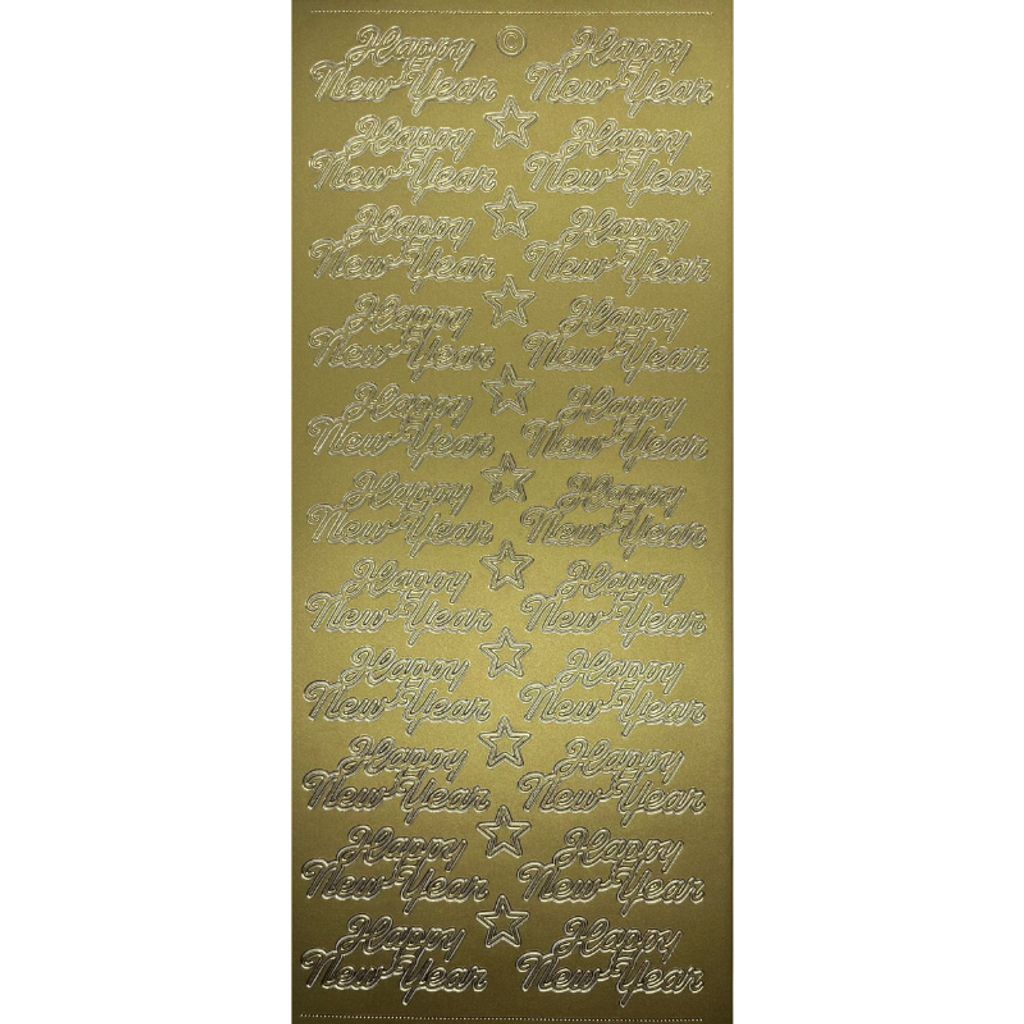 Happy © Happy
New Year New Year
Happy Happy
New Year New Year
Happy Happy
New Year New Year
Happy Happy
New Year New Year
Happy Happy
New Year New Year
Happy Happy
New Year New Year
Happy Happy
New Year New Year
Happy Happy
New Year New Year
Happy Happy
New Year New Year
Happy Happy
New Year New Year
Happy Happy
New Year New Year